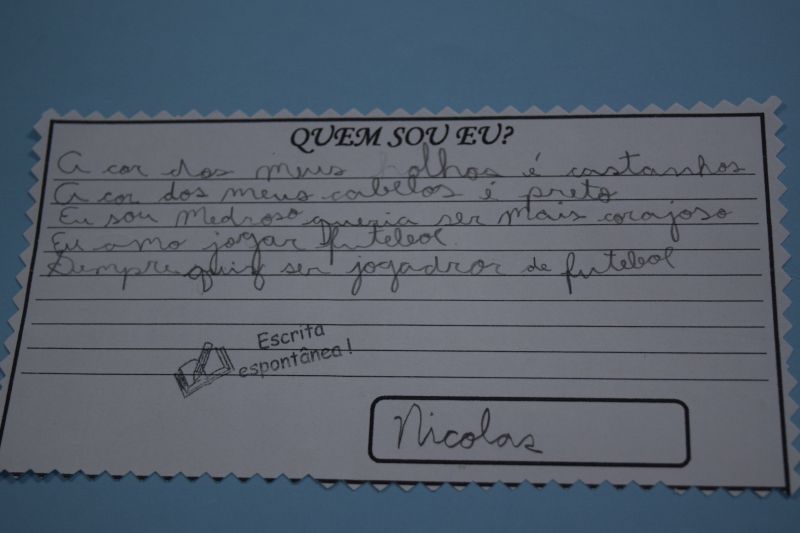 QUEM SOU EU?
A cor dos meus olhos é castanhos
A cor dos meus cabelos é preto
Eu sou Medroso queria ser mais corajoso
Eu amo jogar futebol.
Sempre quis ser jogadror de futebol
Escrita
espontânea!
Nicolas